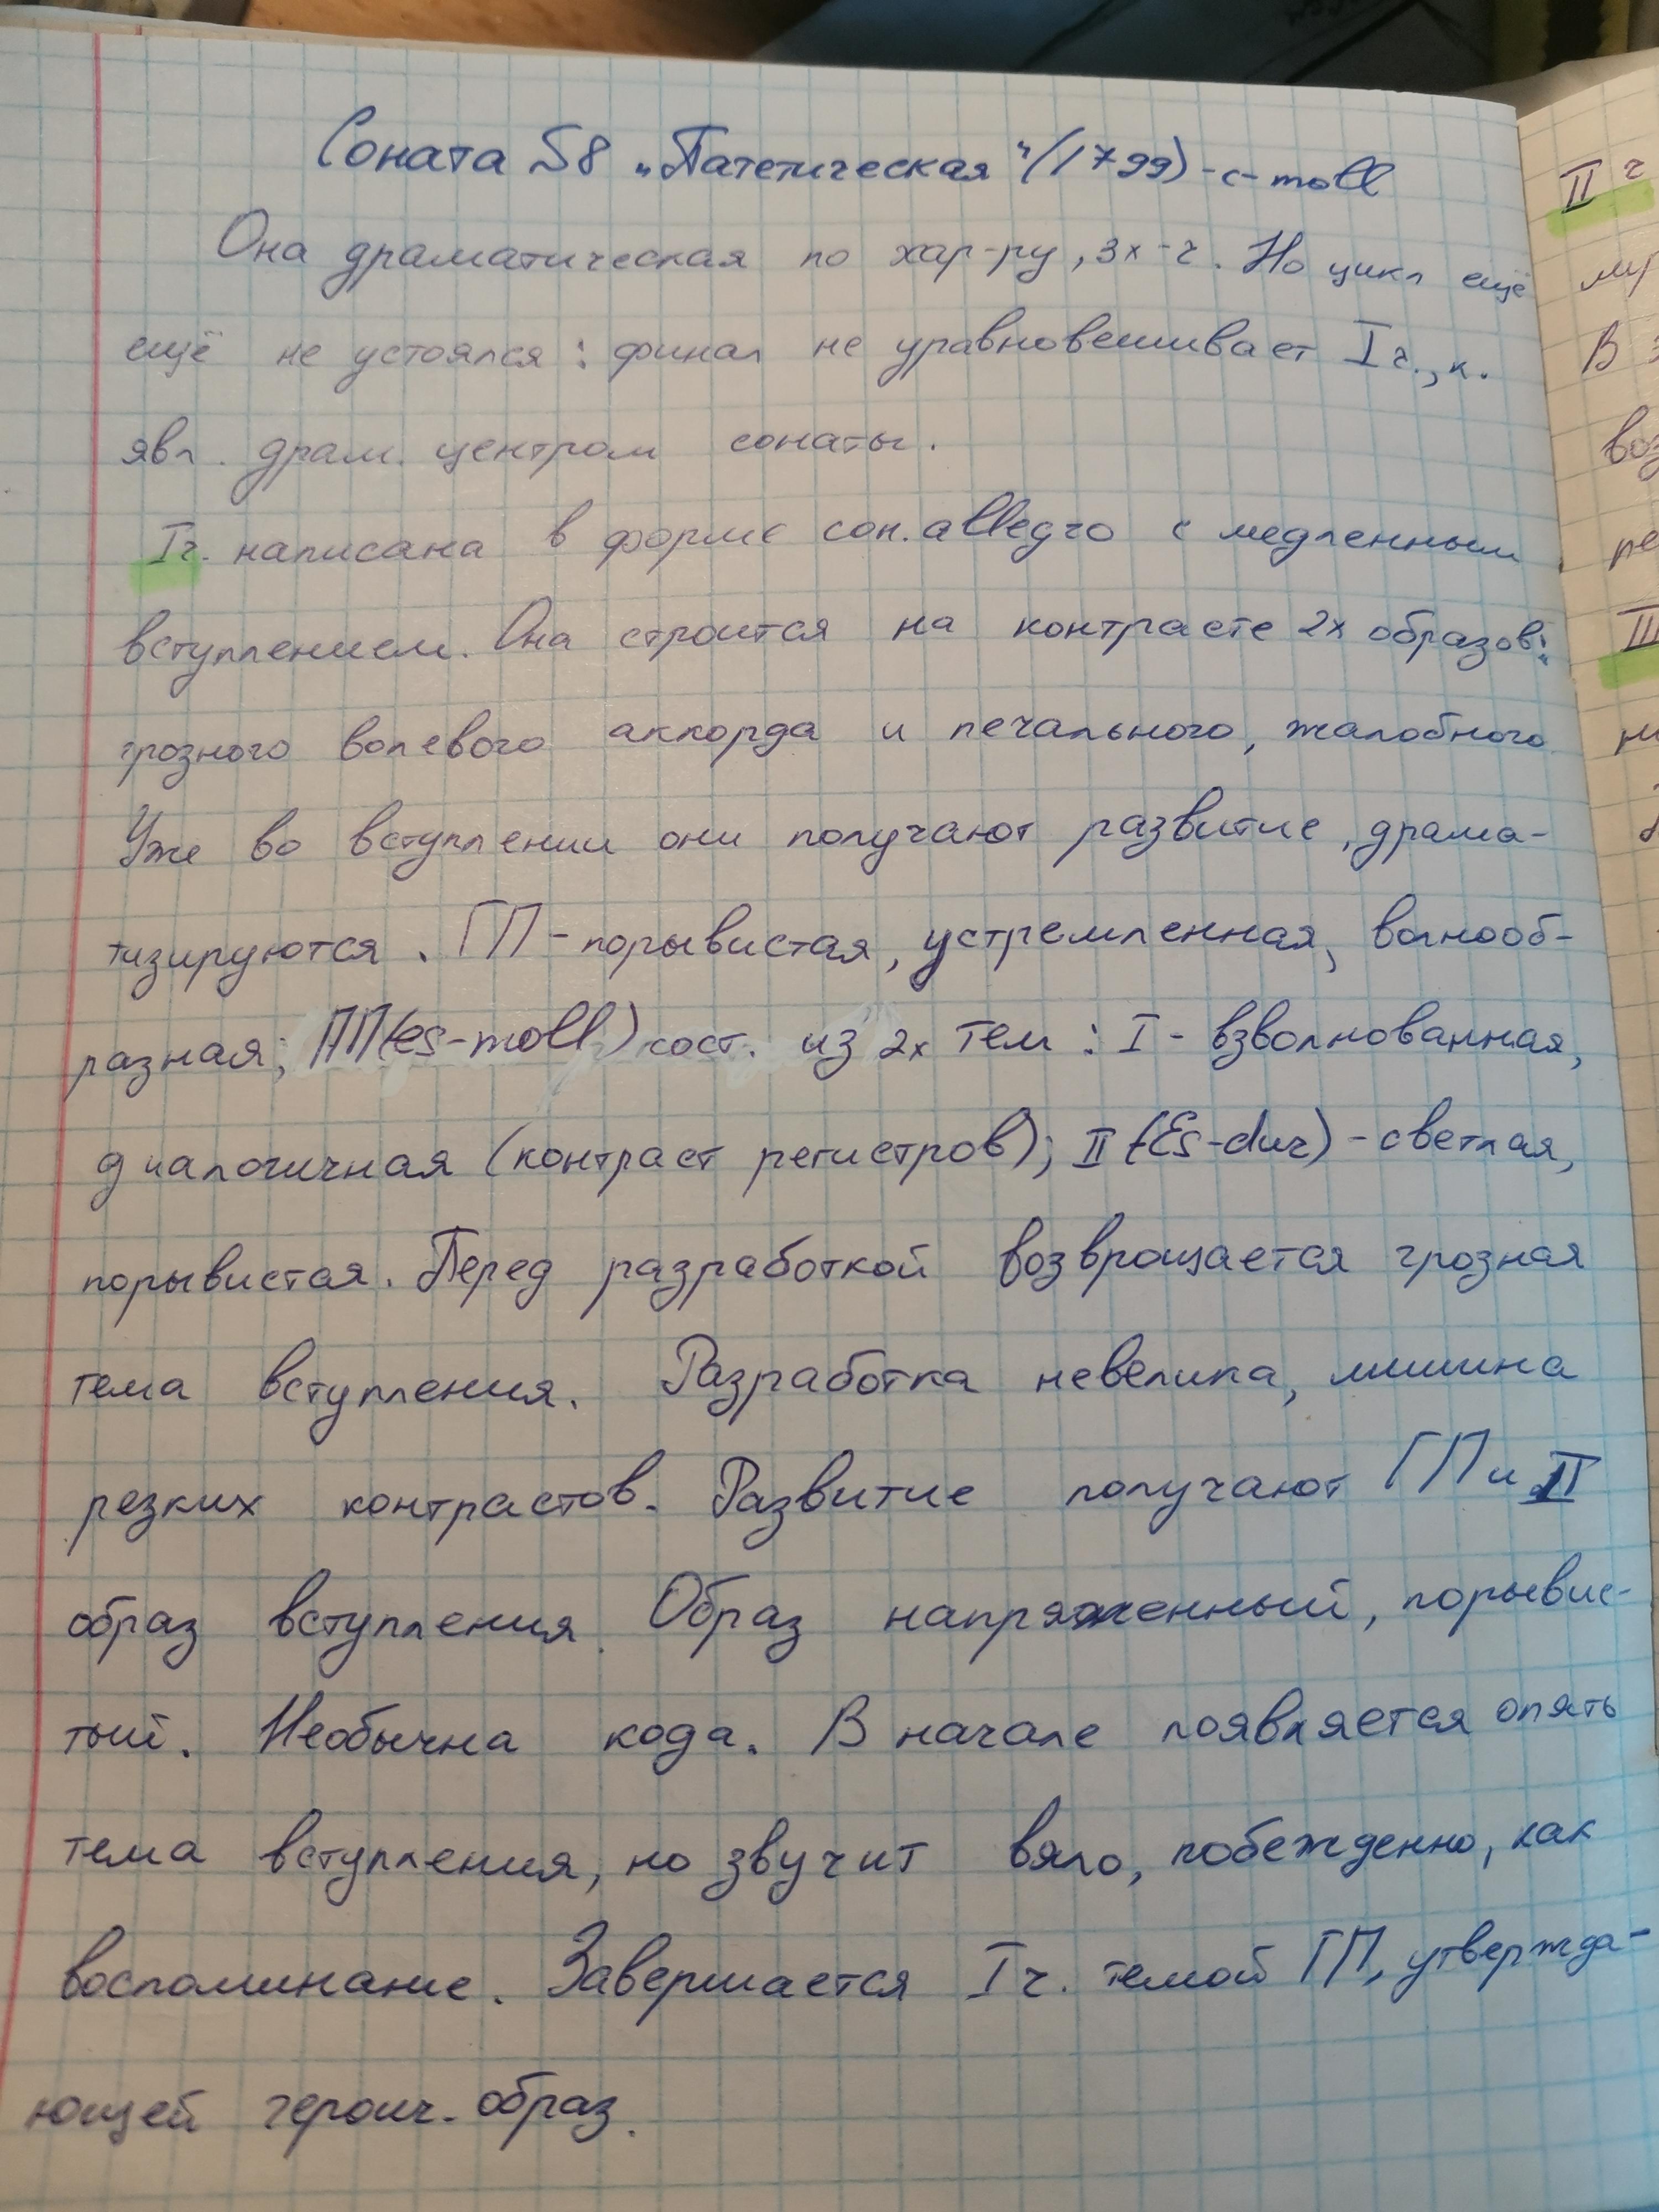 Соната №8 „Патетическая“ (1799) - c-moll
Она драматическая по хар-ру, 3х-ч. Но цикл ещё
ещё не устоялся: финал не уравновешивает I ч., к.
явл. драм. центром сонаты.
I ч. написана в форме сон. allegro с медленным
вступлением. Она строится на контрасте 2х образов:
грозного волевого аккорда и печального, жалобного
Уже во вступлении они получают развитие, драма-
тизируются. ГП - порывистая, устремленная, волнооб-
разная; ПП (es-moll) сост. из 2х тем: I - взволнованная,
диалогичная (контраст регистров); II (Es-dur) - светлая,
порывистая. Перед разработкой возвращается грозная
тема вступления. Разработка невелика, лишина
резких контрастов. Развитие получают ГП и II
образ вступления. Образ напряженный, порывис-
тый. Необычна кода. В начале появляется опять
тема вступления, но звучит вяло, побежденно, как
воспоминание. Завершается I ч. темой ГП, утвержда-
ющей героич. образ.
II ч
В
воз
ре
III